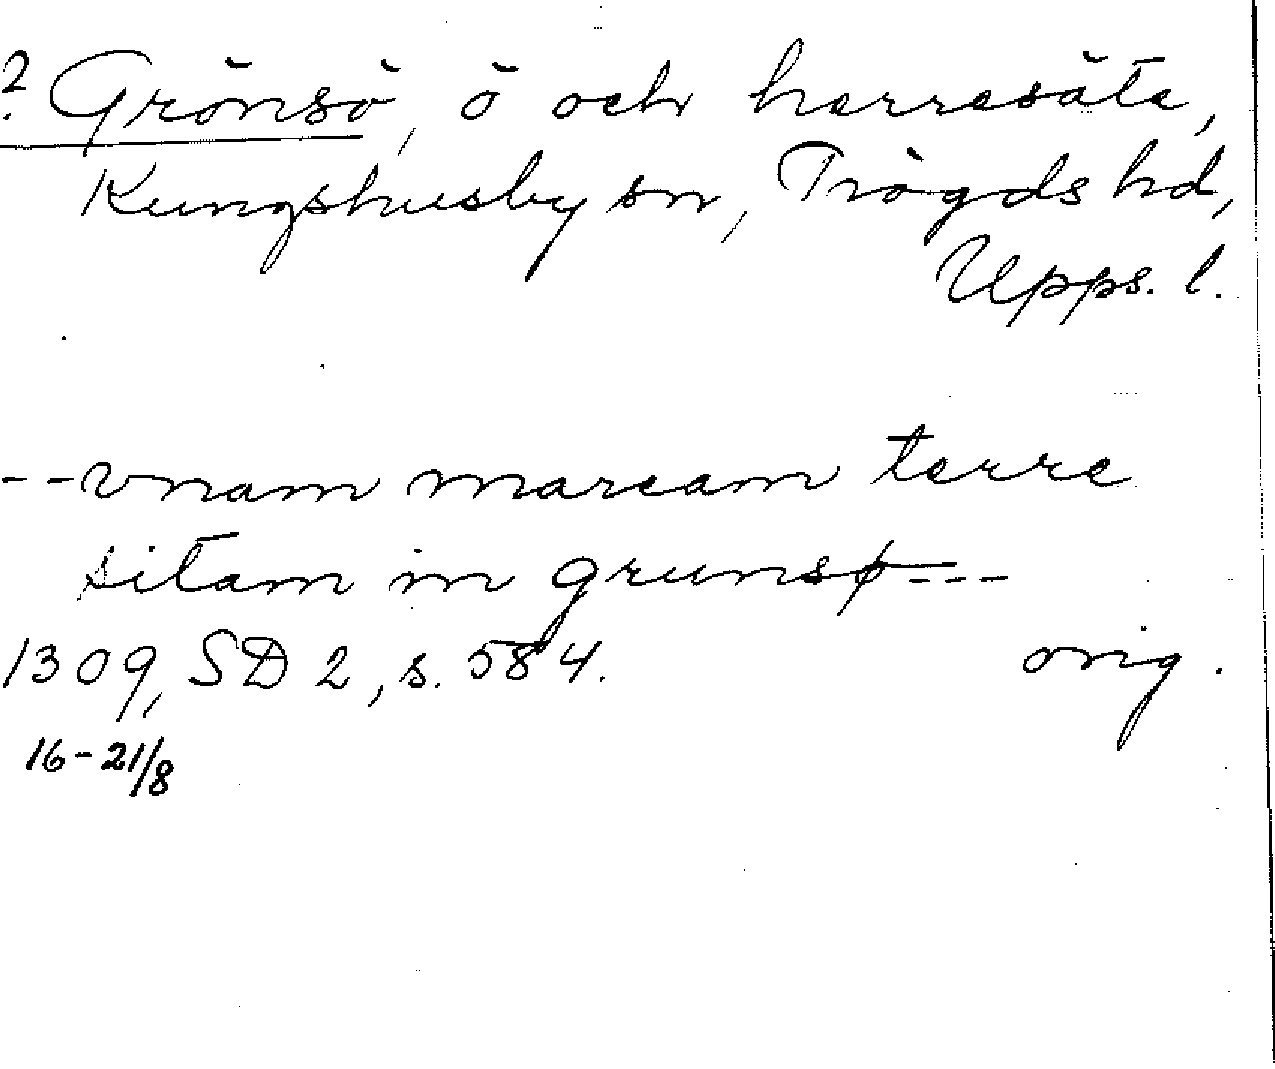 ? Grönsö, ö och herresäte,
Kungshusby sn, Trögds hd,
Upps. l.
--vnam marcam terre
sitam in grunsø---
1309, SD 2, s. 584. orig.
16-21/8